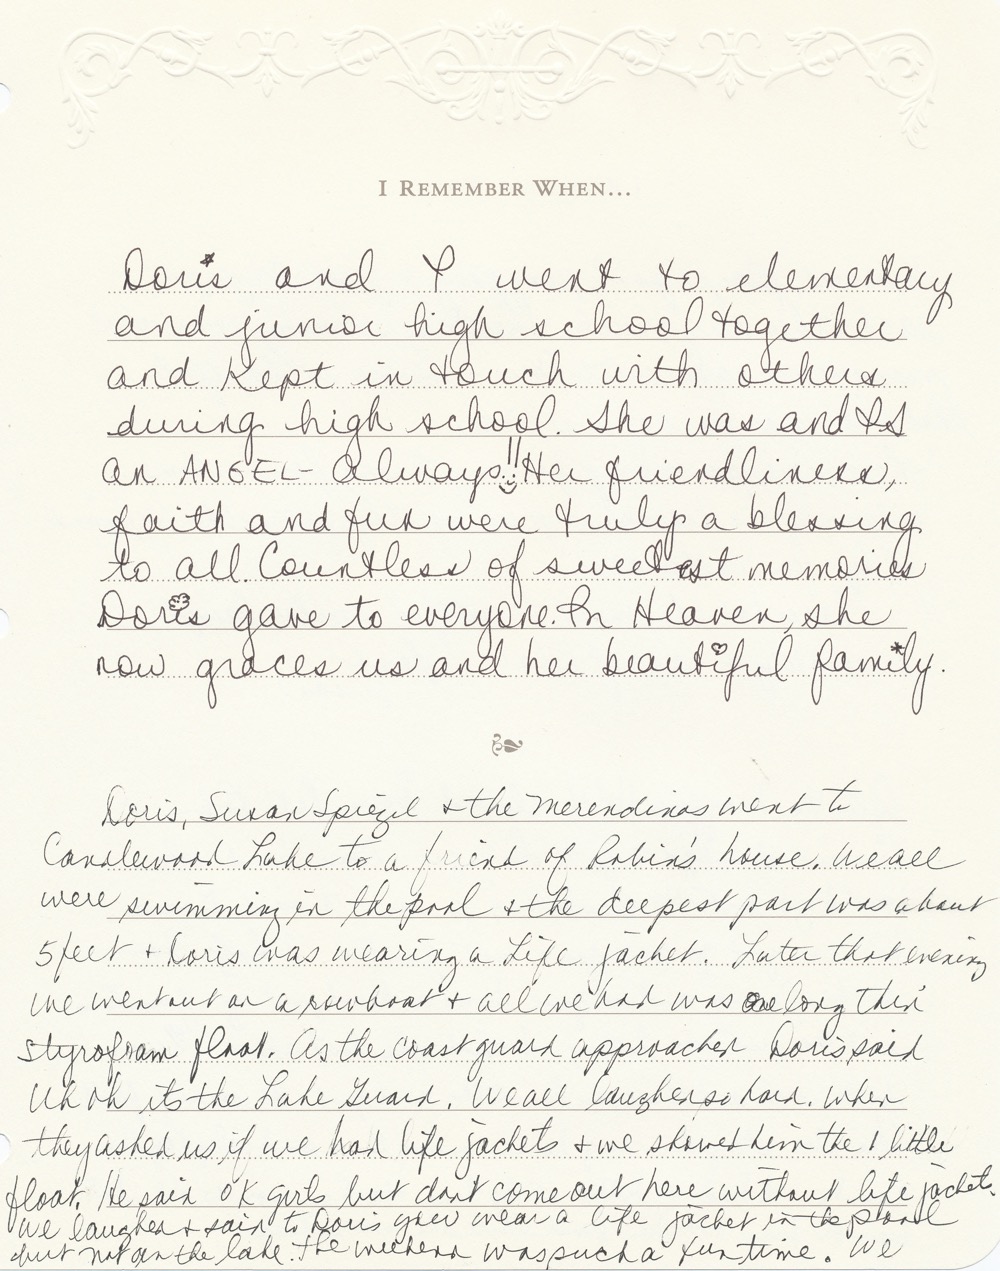 I REMEMBER WHEN...
Doris and I went to elementary
and junior high school together
and kept in touch with others
during high school. She was and IS
an ANGEL- Always!! Her friendliness,
faith and fun were truly a blessing
to all. Countless of sweetest memories
Doris gave to everyone. In Heaven, she
now graces us and her beautiful family.
Doris, Susan Spiegel & the Merendinos went to
Candlewood Lake to a friend of Robin's house. We all
were swimming in the pool & the deepest part was about
5 feet & Doris was wearing a life jacket. Later that evening
we went out on a rowboat & all we had was one long thin
styrofoam float. As the coast guard approached Doris said
Uh oh its the Lake Guard. We all laughed so hard. When
they asked us if we had life jackets & we showed him the 1 little
float. He said OK girls but dont come out here without life jackets.
We laughed & said to Doris you wear a life jacket in the pool
but not on the lake. The weekend was such a fun time. We